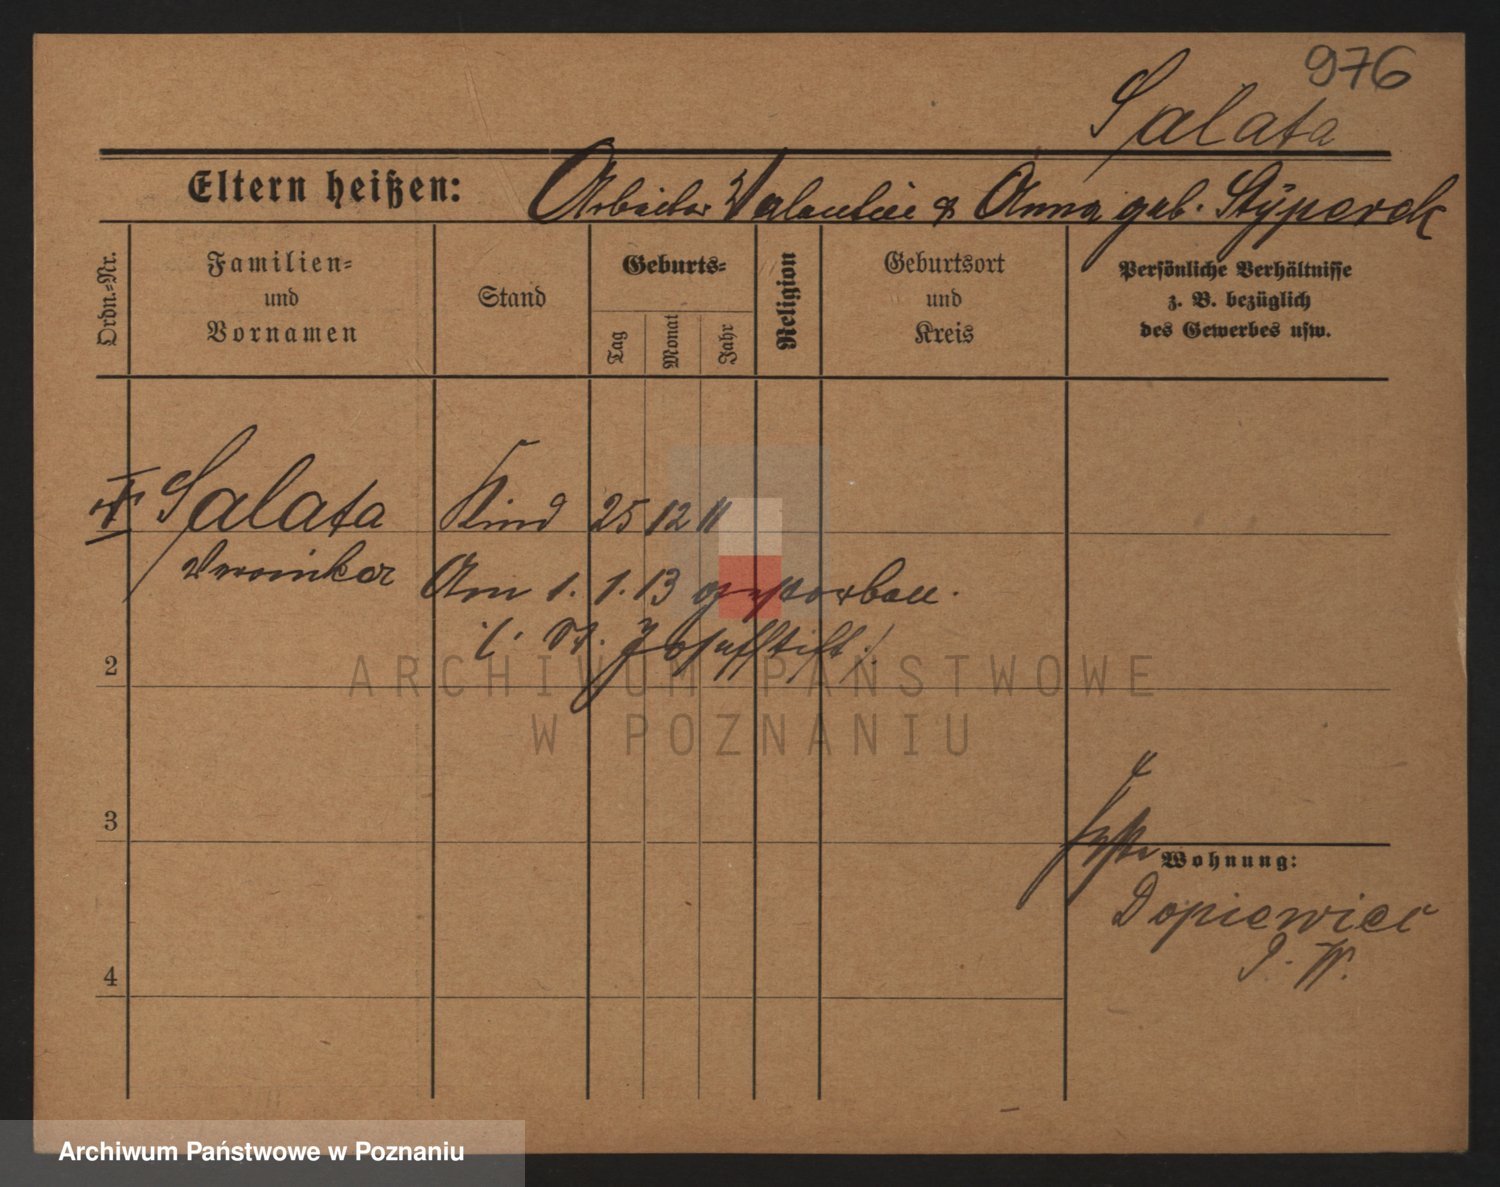 976
Salata
Eltern heißen: Arbeiter Valentin & Anna geb. Stÿperek
Ordn.=Nr.
Familien=
und
Vornamen
Stand
Geburts=
Tag
Monat
Jahr
Religion
Geburtsort
und
Kreis
Persönliche Verhältnisse
z. B. bezüglich
des Gewerbes usw.
Salata Kind 25 12 11
Veronika Am 1. 1. 13 gestorben.
i. St. Josefstift.
2
ARCHIWUM PAŃSTWOWE
W POZNANIU
3
Wohnung:
Dopiewiec
P. W.
4
Archiwum Państwowe w Poznaniu